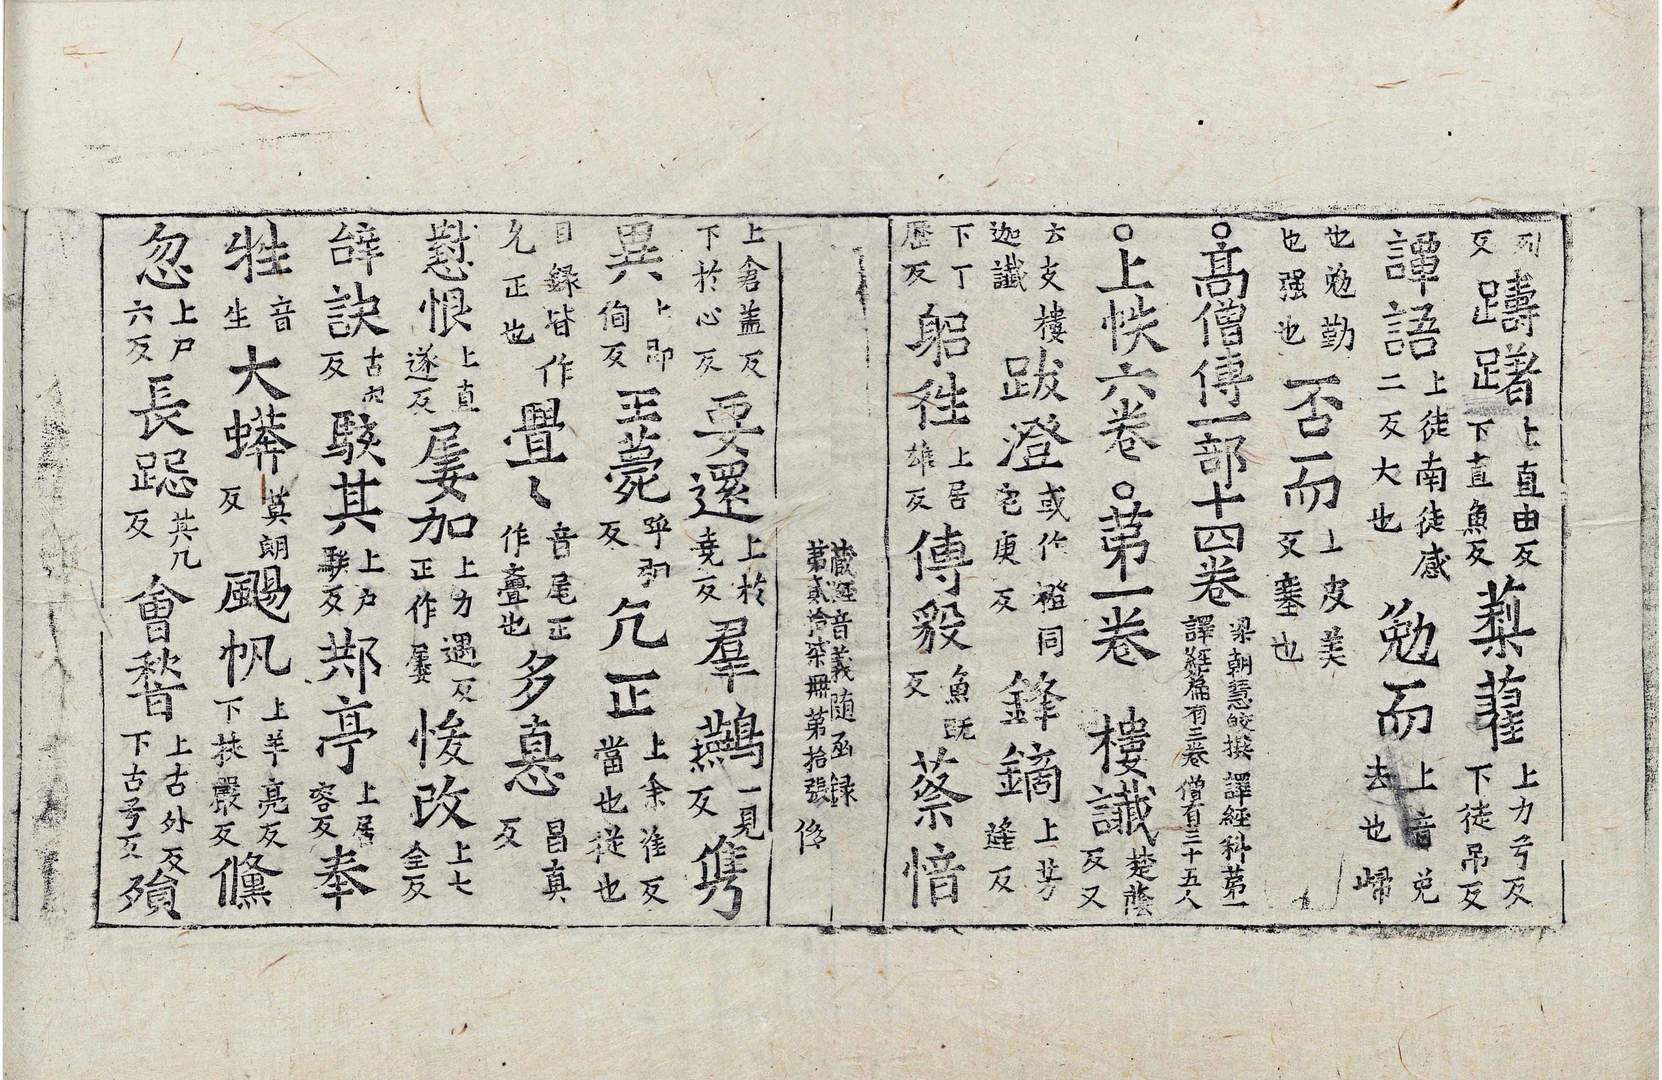 列反躊躇上直由反下直魚反蔾藋上力兮反下徒吊反
譚語上徒南徒感二反大也勉而上音免去也歸
也勉勤也强也否而上皮美反塞也
○高僧傳一部十四卷梁朝慧皎撰譯經篇有三卷譯經科第一僧有三十五人
○上帙六卷○苐一卷樓讖楚蔭反又
云支樓迦讖跋澄或作橙同宅庚反鋒鏑上芳逢反
下丁歷反躬徃上居雄反傅毅魚旣反蔡愔
藏經音義随函録第貳拾柒册第拾張
上倉盖反下於心反要還上於堯反羣鷰一見反雋
異上即伺反王薨呼肱反允正上余准反當也從也
目録皆作允正也亹〻音尾正作亹也多惪昌真反
懟恨上直遂反屢加上力遇反正作屢悛改上七全反
辝訣古穴反駭其上戶騃反䢼亭上居容反奉
牲音生大蟒莫朗反颺帆上羊亮反下扶嚴反儵
忽上尸六反長跽其几反會䭬上古外反下古号反殞